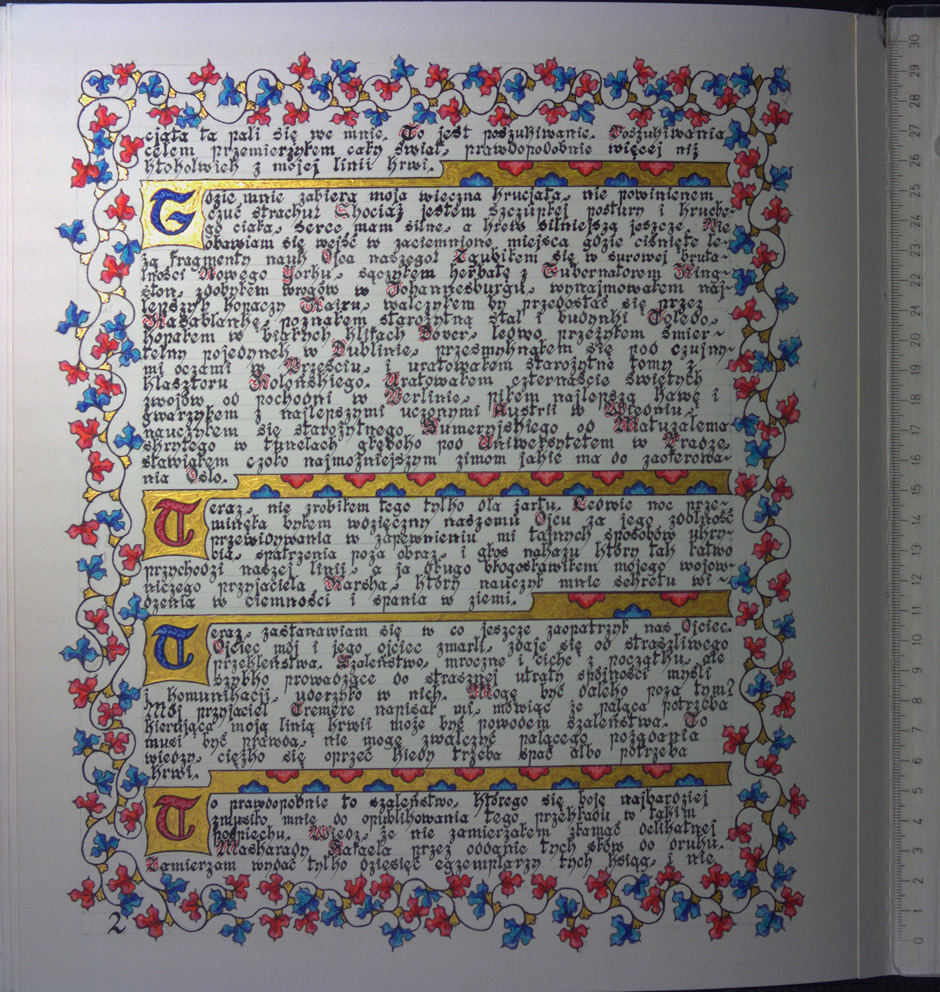 cjata ta pali się we mnie. To jest poszukiwanie. Poszukiwania
celem przemierzyłem cały świat, prawdopodobnie więcej niż
ktokolwiek z mojej linii krwi.
Gdzie mnie zabiera moja wieczna krucjata, nie powinienem
czuć strachu. Chociaż jestem szczupłej postury i kruche-
go ciała, serce mam silne, a krew silniejszą jeszcze. Nie
obawiam się wejść w zaciemnione miejsca gdzie ciśnięte le-
żą fragmenty nauk Ojca naszego. Zgubiłem się w surowej bruta-
lności Nowego Jorku, sączyłem herbatę z Gubernatorem King-
ston, zdobyłem wrogów w Johannesburgu, wynajmowałem naj-
lepszych kopaczy Kairu, walczyłem by przedostać się przez
Kasablankę, poznałem starożytną stal i budynki Toledo,
kopałem w białych klifach Dover, ledwo przeżyłem śmier-
telny pojedynek w Dublinie, przesmyknąłem się pod czujny-
mi oczami w Brześciu, i uratowałem starożytne tomy z
klasztoru Kolońskiego. Uratowałem czternaście świętych
zwojów od pochodni w Berlinie, piłem najlepszą kawę i
gwarzyłem z najlepszymi uczonymi Austrii w Wiedniu,
nauczyłem się starożytnego Sumeryjskiego od Matuzalema
skrytego w tunelach głęboko pod Uniwersytetem w Pradze,
stawiałem czoło najmoźniejszym zimom jakie ma do zaoferowa-
nia Oslo.
Teraz, nie zrobiłem tego tylko dla żartu. Ledwie noc prze-
minęła byłem wdzięczny naszemu Ojcu za jego zdolność
przewidywania w zapewnieniu mi tajnych sposobów ukry-
cia, spatrzenia poza obraz, i głos nakazu który tak łatwo
przychodzi naszej linii, a ja długo błogosławiłem mojego wojow-
niczego przyjaciela Karsha, który nauczył mnie sekretu wi-
dzenia w ciemności i spania w ziemi.
Teraz, zastanawiam się w co jeszcze zaopatrzył nas Ojciec.
Ojciec mój i jego ojciec zmarli, zdaje się od straszliwego
przekleństwa. Szaleństwo, mroczne i ciche z początku, ale
szybko prowadzące do strasznej utraty spójności myśli
i komunikacji, uderzyło w nich. Mogę być daleko poza tym?
Mój przyjaciel Tremere napisał mi, mówiąc że paląca potrzeba
kierująca moją linią krwii może być powodem szaleństwa. To
musi być prawda, nie mogę zwalczyć palącego pożądania
wiedzy, ciężko się oprzeć kiedy trzeba spać albo potrzeba
krwi.
To prawdopodobnie to szaleństwo, którego się boję najbardziej
zmusiło mnie do opublikowania tego przekładu w takim
pośpiechu. Wiedz, że nie zamierzałem złamać delikatnej
Maskarady Rafaela przez oddanie tych słów do druku.
Zamierzam wydać tylko dziesięć egzemplarzy tych ksiąg, i nie
2
0 1 2 3 4 5 6 7 8 9 10 11 12 13 14 15 16 17 18 19 20 21 22 23 24 25 26 27 28 29 30